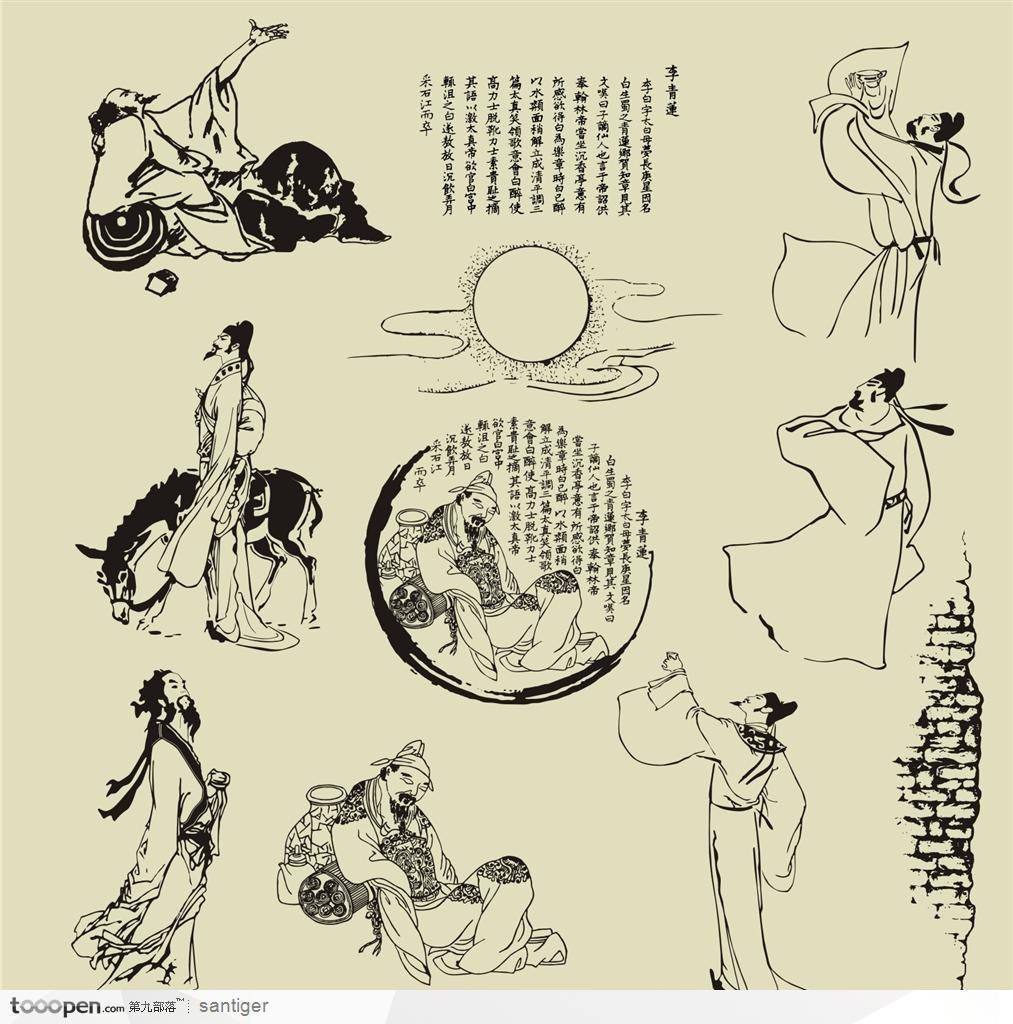 李青蓮
李白字太白母夢長庚星因名
白生蜀之青蓮鄉賀知章見其
文嘆曰子謫仙人也言于帝詔供
奉翰林帝嘗坐沉香亭意有
所感欲得白為樂章時白已醉
以水類面稍解立成清平調三
篇太真笑領歌意會白醉使
高力士脫靴力士素貴恥之摘
其語以激太真帝欲官白宮中
輒沮之白遂敖放日沉飲弄月
采石江而卒
李青蓮
李白字太白母夢長庚星因名
白生蜀之青蓮鄉賀知章見其文嘆曰
子謫仙人也言于帝詔供奉翰林帝
嘗坐沉香亭意有所感欲得白
為樂章時白已醉以水類面稍
解立成清平調三篇太真笑領歌
意會白醉使高力士脫靴力士
素貴恥之摘其語以激太真帝
欲官白宮中
輒沮之白
遂敖放日
沉飲弄月
采石江
而卒
tooopen.com 第九部落™ santiger